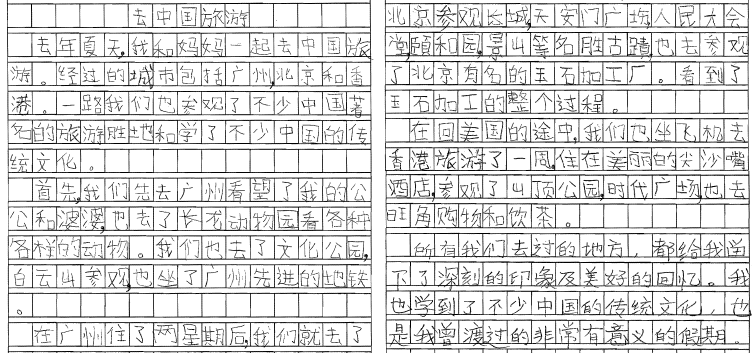 去中国旅游
去年夏天,我和妈妈一起去中国旅
游。经过的城市包括广州,北京和香
港。一路我们也参观了不少中国著
名的旅游胜地和学了不少中国的传
统文化。
首先,我们先去广州看望了我的公
公和婆婆,也去了长龙动物园看各种
各样的动物。我们也去了文化公园,
白云山参观,也坐了广州先进的地铁
。
在广州住了两星期后,我们就去了
北京参观长城,天安门广场,人民大会
堂,颐和园,景山等名胜古蹟,也去参观
了北京有名的玉石加工厂。看到了
玉石加工的整个过程。
在回美国的途中,我们也坐飞机去
香港旅游了一周,住在美丽的尖沙嘴
酒店,参观了山顶公园,时代广场,也去
旺角购物和饮茶。
所有我们去过的地方,都给我留
下了深刻的印象及美好的回忆。我
也学到了不少中国的传统文化,也
是我曾渡过的非常有意义的假期。